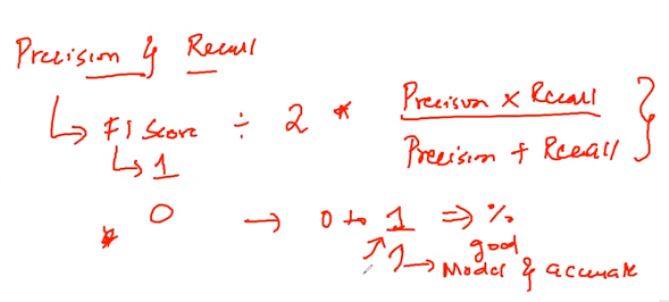 Precision & Recall
↳ F1 Score ÷ 2 * Precision x Recall / Precision + Recall }
↳ 1
* 0 → 0 to 1 ⇒ %
↗ 1 → good Model & accurate